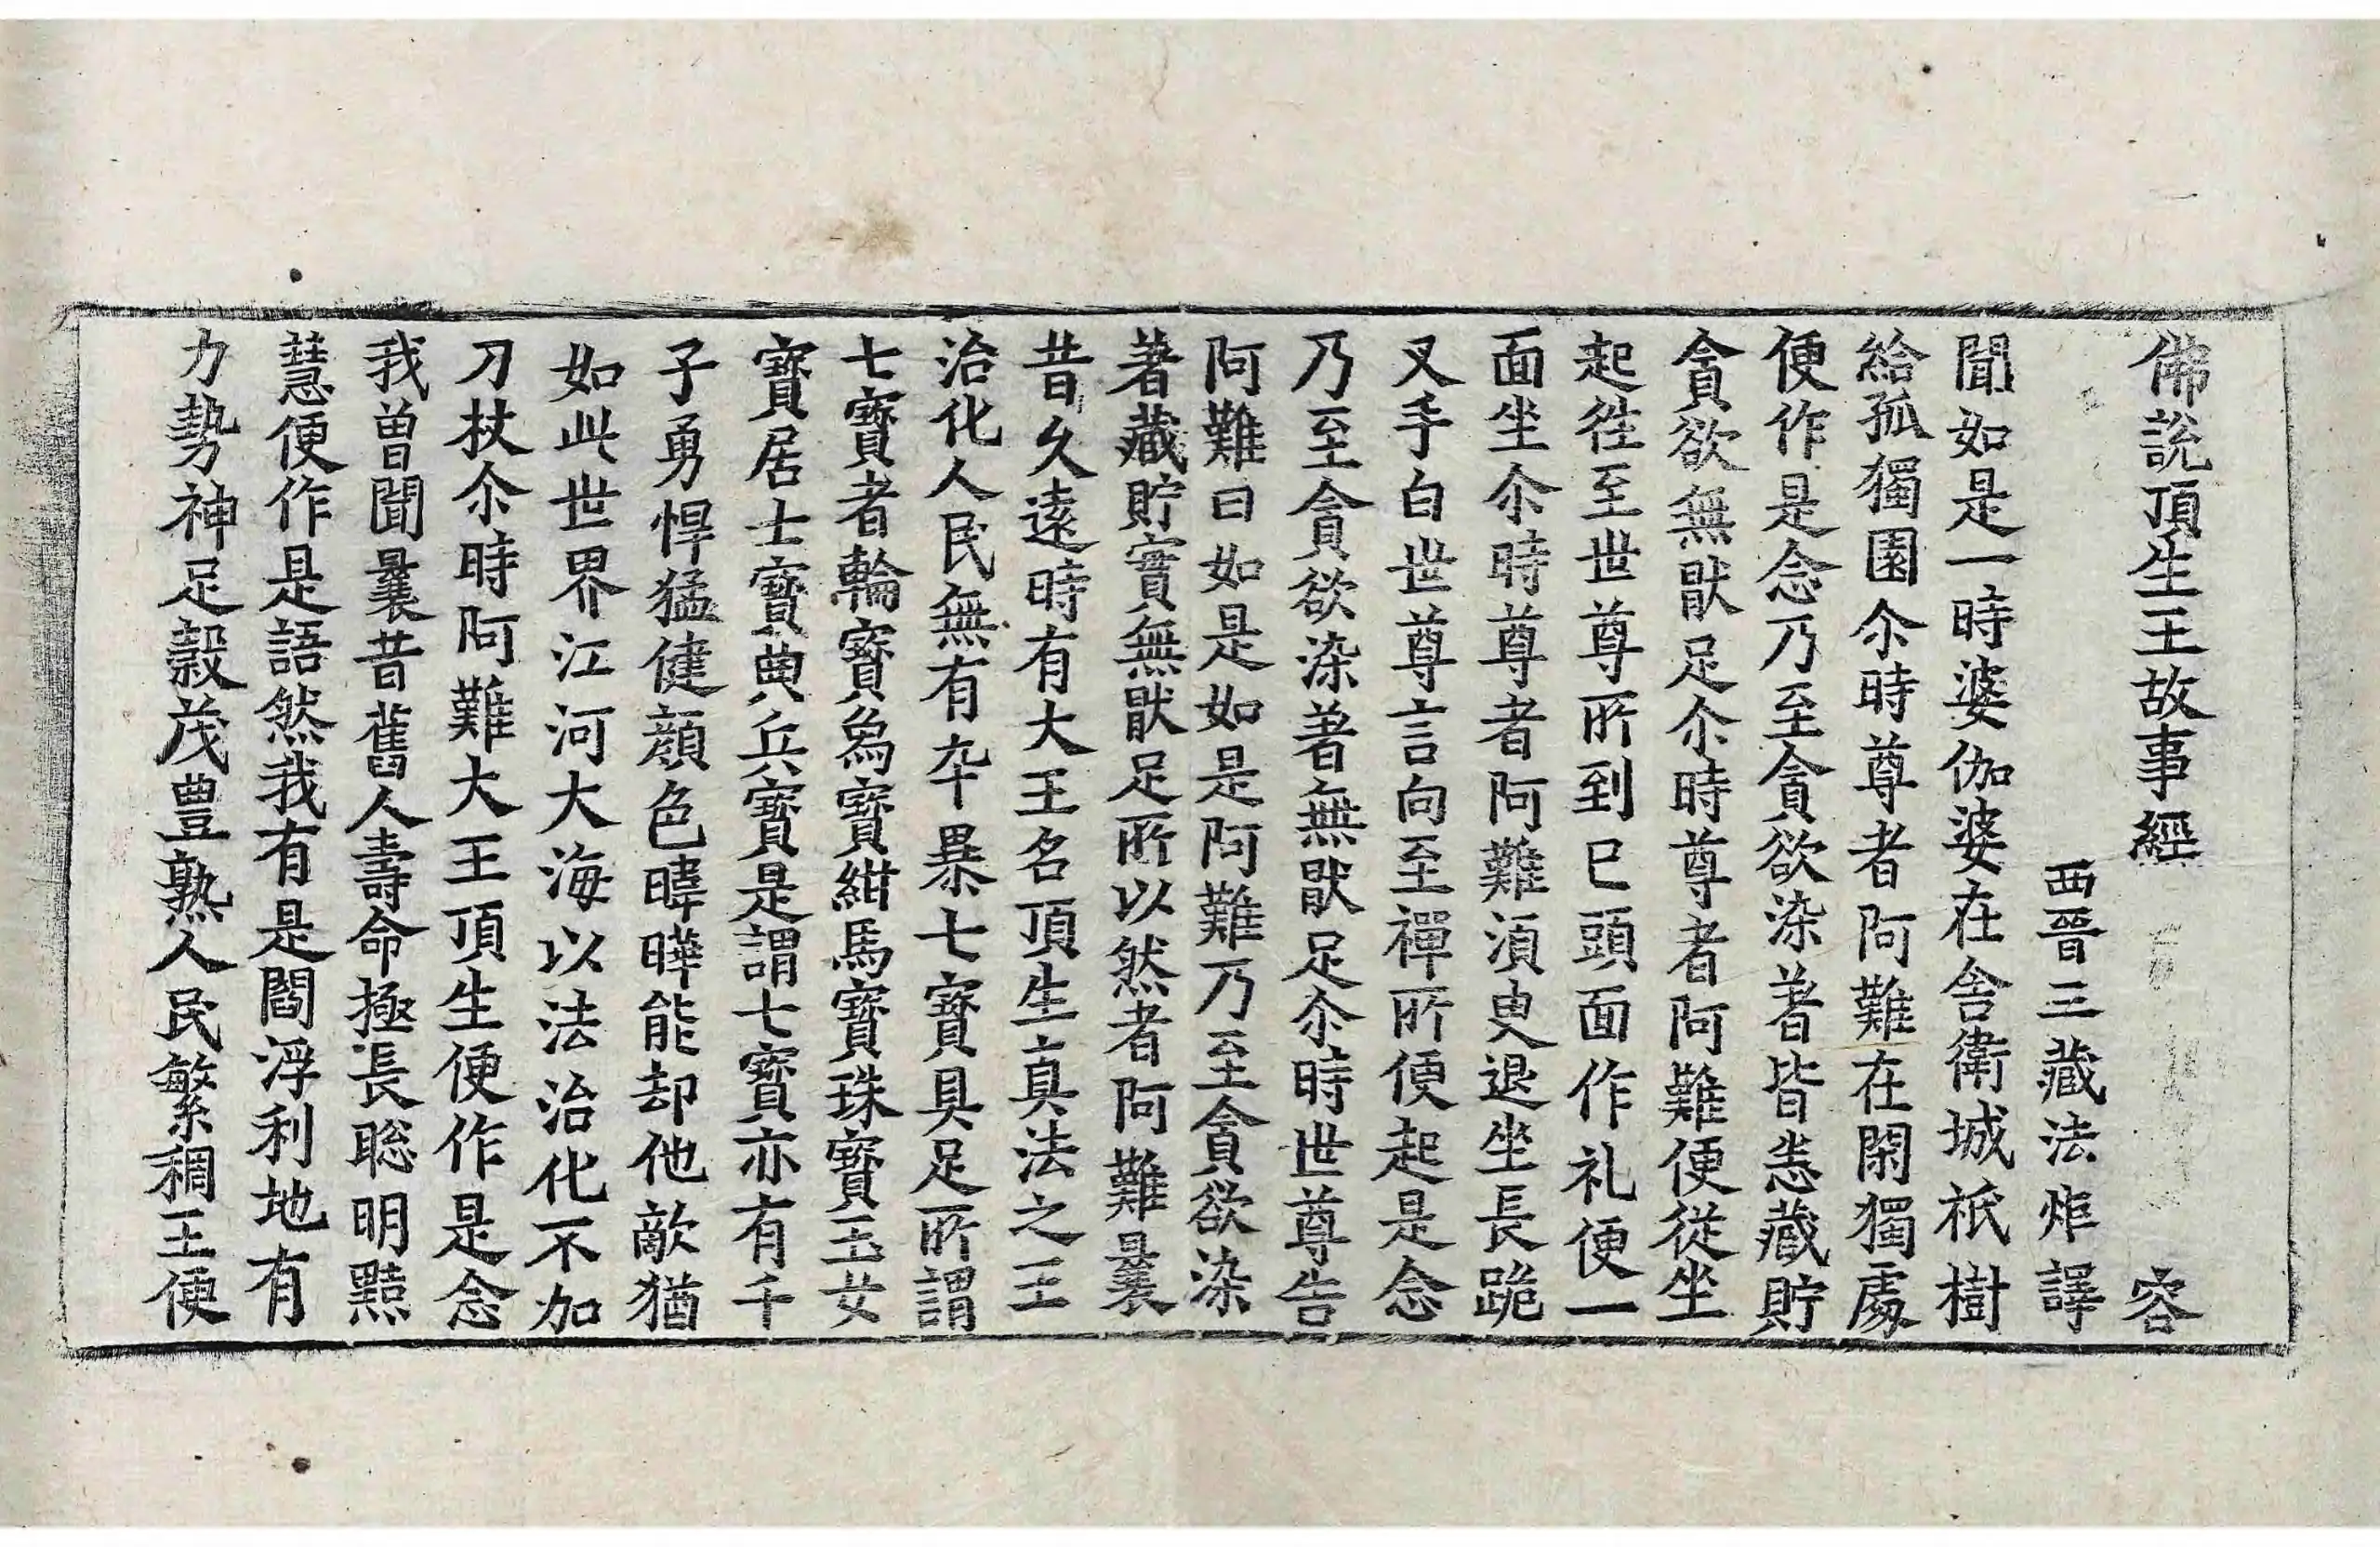 佛說頂生王故事經 容
西晉三藏法炬譯
聞如是一時婆伽婆在舍衛城祇樹
給孤獨園尒時尊者阿難在閑獨處
便作是念乃至貪欲染著皆悉藏貯
貪欲無猒足尒時尊者阿難便從坐
起往至世尊所到已頭面作礼便一
面坐尒時尊者阿難湏臾退坐長跪
叉手白世尊言向至禪所便起是念
乃至貪欲染著無猒足尒時世尊告
阿難曰如是如是阿難乃至貪欲染
著藏貯實無猒足所以然者阿難曩
昔久遠時有大王名頂生真法之王
治化人民無有卒暴七寶具足所謂
七寶者輪寶象寶紺馬寶珠寶玉女
寶居士寶典兵寶是謂七寶亦有千
子勇悍猛健顔色暐曄能却他敵猶
如此世界江河大海以法治化不加
刀杖尒時阿難大王頂生便作是念
我曾聞曩昔舊人壽命極長聡明黠
慧便作是語然我有是閻浮利地有
力勢神足穀茂豊熟人民繁稠王便